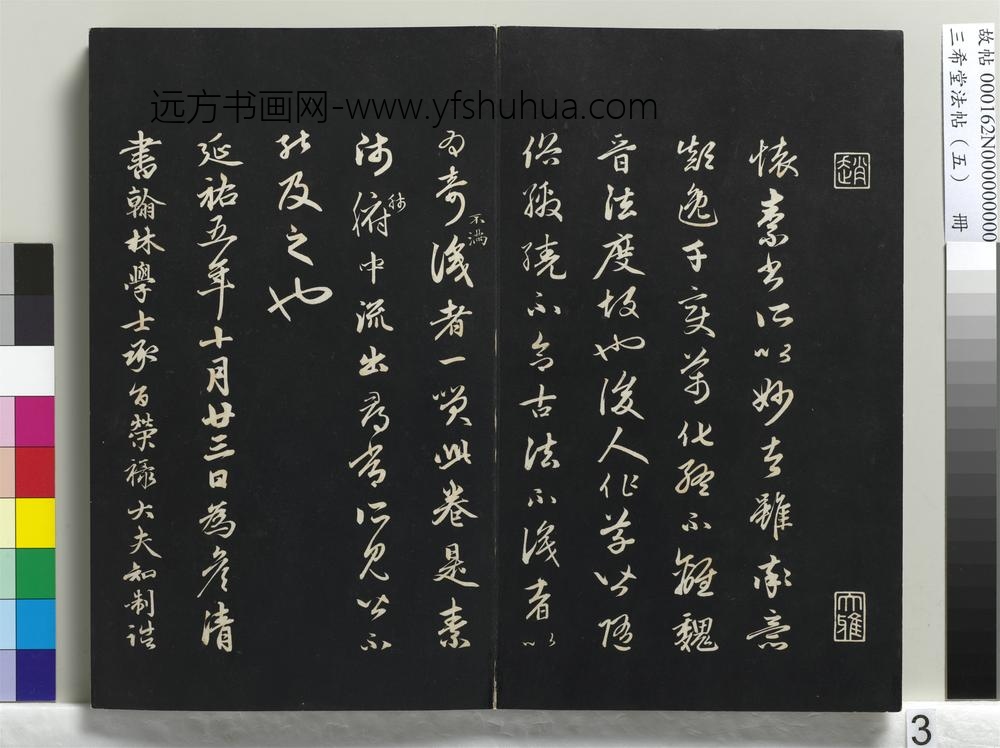 故帖 000162N000000000
三希堂法帖（五） 冊
远方书画网-www.yfshuhua.com
趙
大雅
懷素書所以妙者雖率意
顛逸千變萬化終不離魏
晉法度故也後人作草皆隨
俗繳繞不合古法不識者以
為奇不滿識者一笑此卷是素
師肺腑中流出尋常所見皆不
能及之也
延祐五年十月廿三日為彥清
書翰林學士承旨榮祿大夫知制誥
3